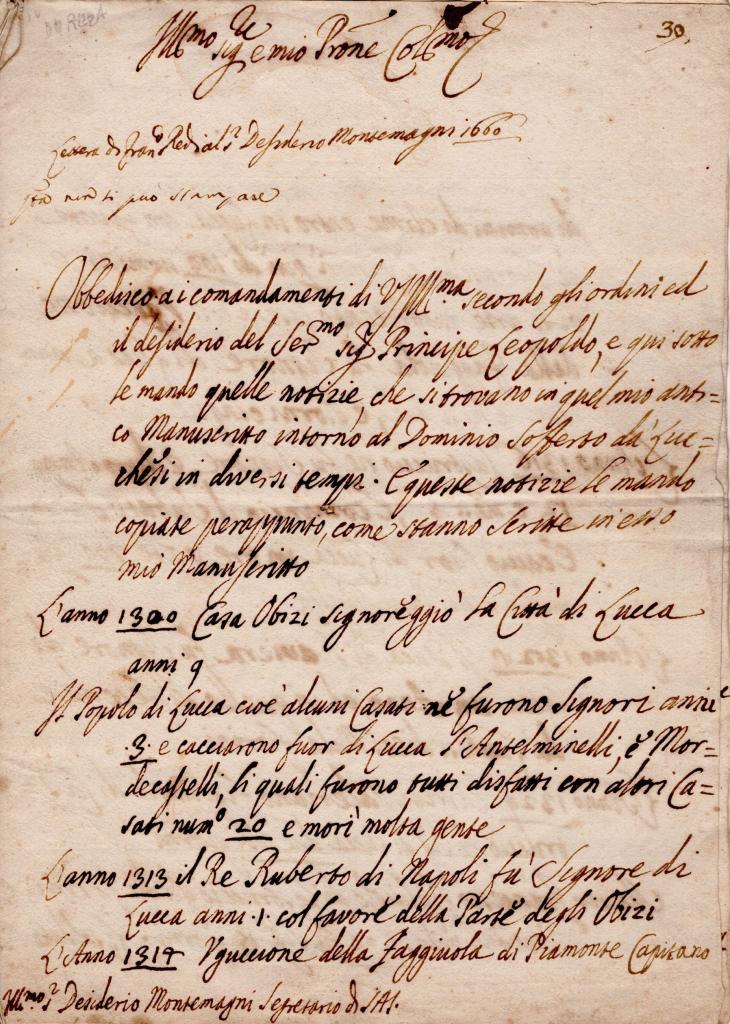 30
Ill.mo Sig.re e mio Prōne Col.mo
Lettera di Fran.o Redi al S.r Desiderio Montemagni 1660
non si può stampare
Obbedisco ai comandamenti di V S Ill.ma secondo gli ordini ed
il desiderio del Ser.mo sig.r Principe Leopoldo, e qui sotto
le mando quelle notizie, che si trovano in quel mio anti=
co Manuscritto intorno al Dominio sofferto da' Luc=
chesi in diversi tempi. E queste notizie le mando
copiate perappunto, come stanno scritte in esso
mio Manuscritto
L'anno 1300 Casa Obizi signoreggiò la Città di Lucca
anni 9
Il Popolo di Lucca cioè alcuni Casati ne furono Signori anni
.3. e cacciarono fuor di Lucca l'Antelminelli, e Mor=
decastelli, li quali furono tutti disfatti con altri Ca=
sati num.o 20 e morì molta gente
L'anno 1313 il Re Ruberto di Napoli fù Signore di
Lucca anni .1. col favore della Parte degli Obizi
L'Anno 1314 Vguccione della Faggivola di Piamonte Capitano
Ill.mo S.r Desiderio Montemagni Segretario di S.A.S.